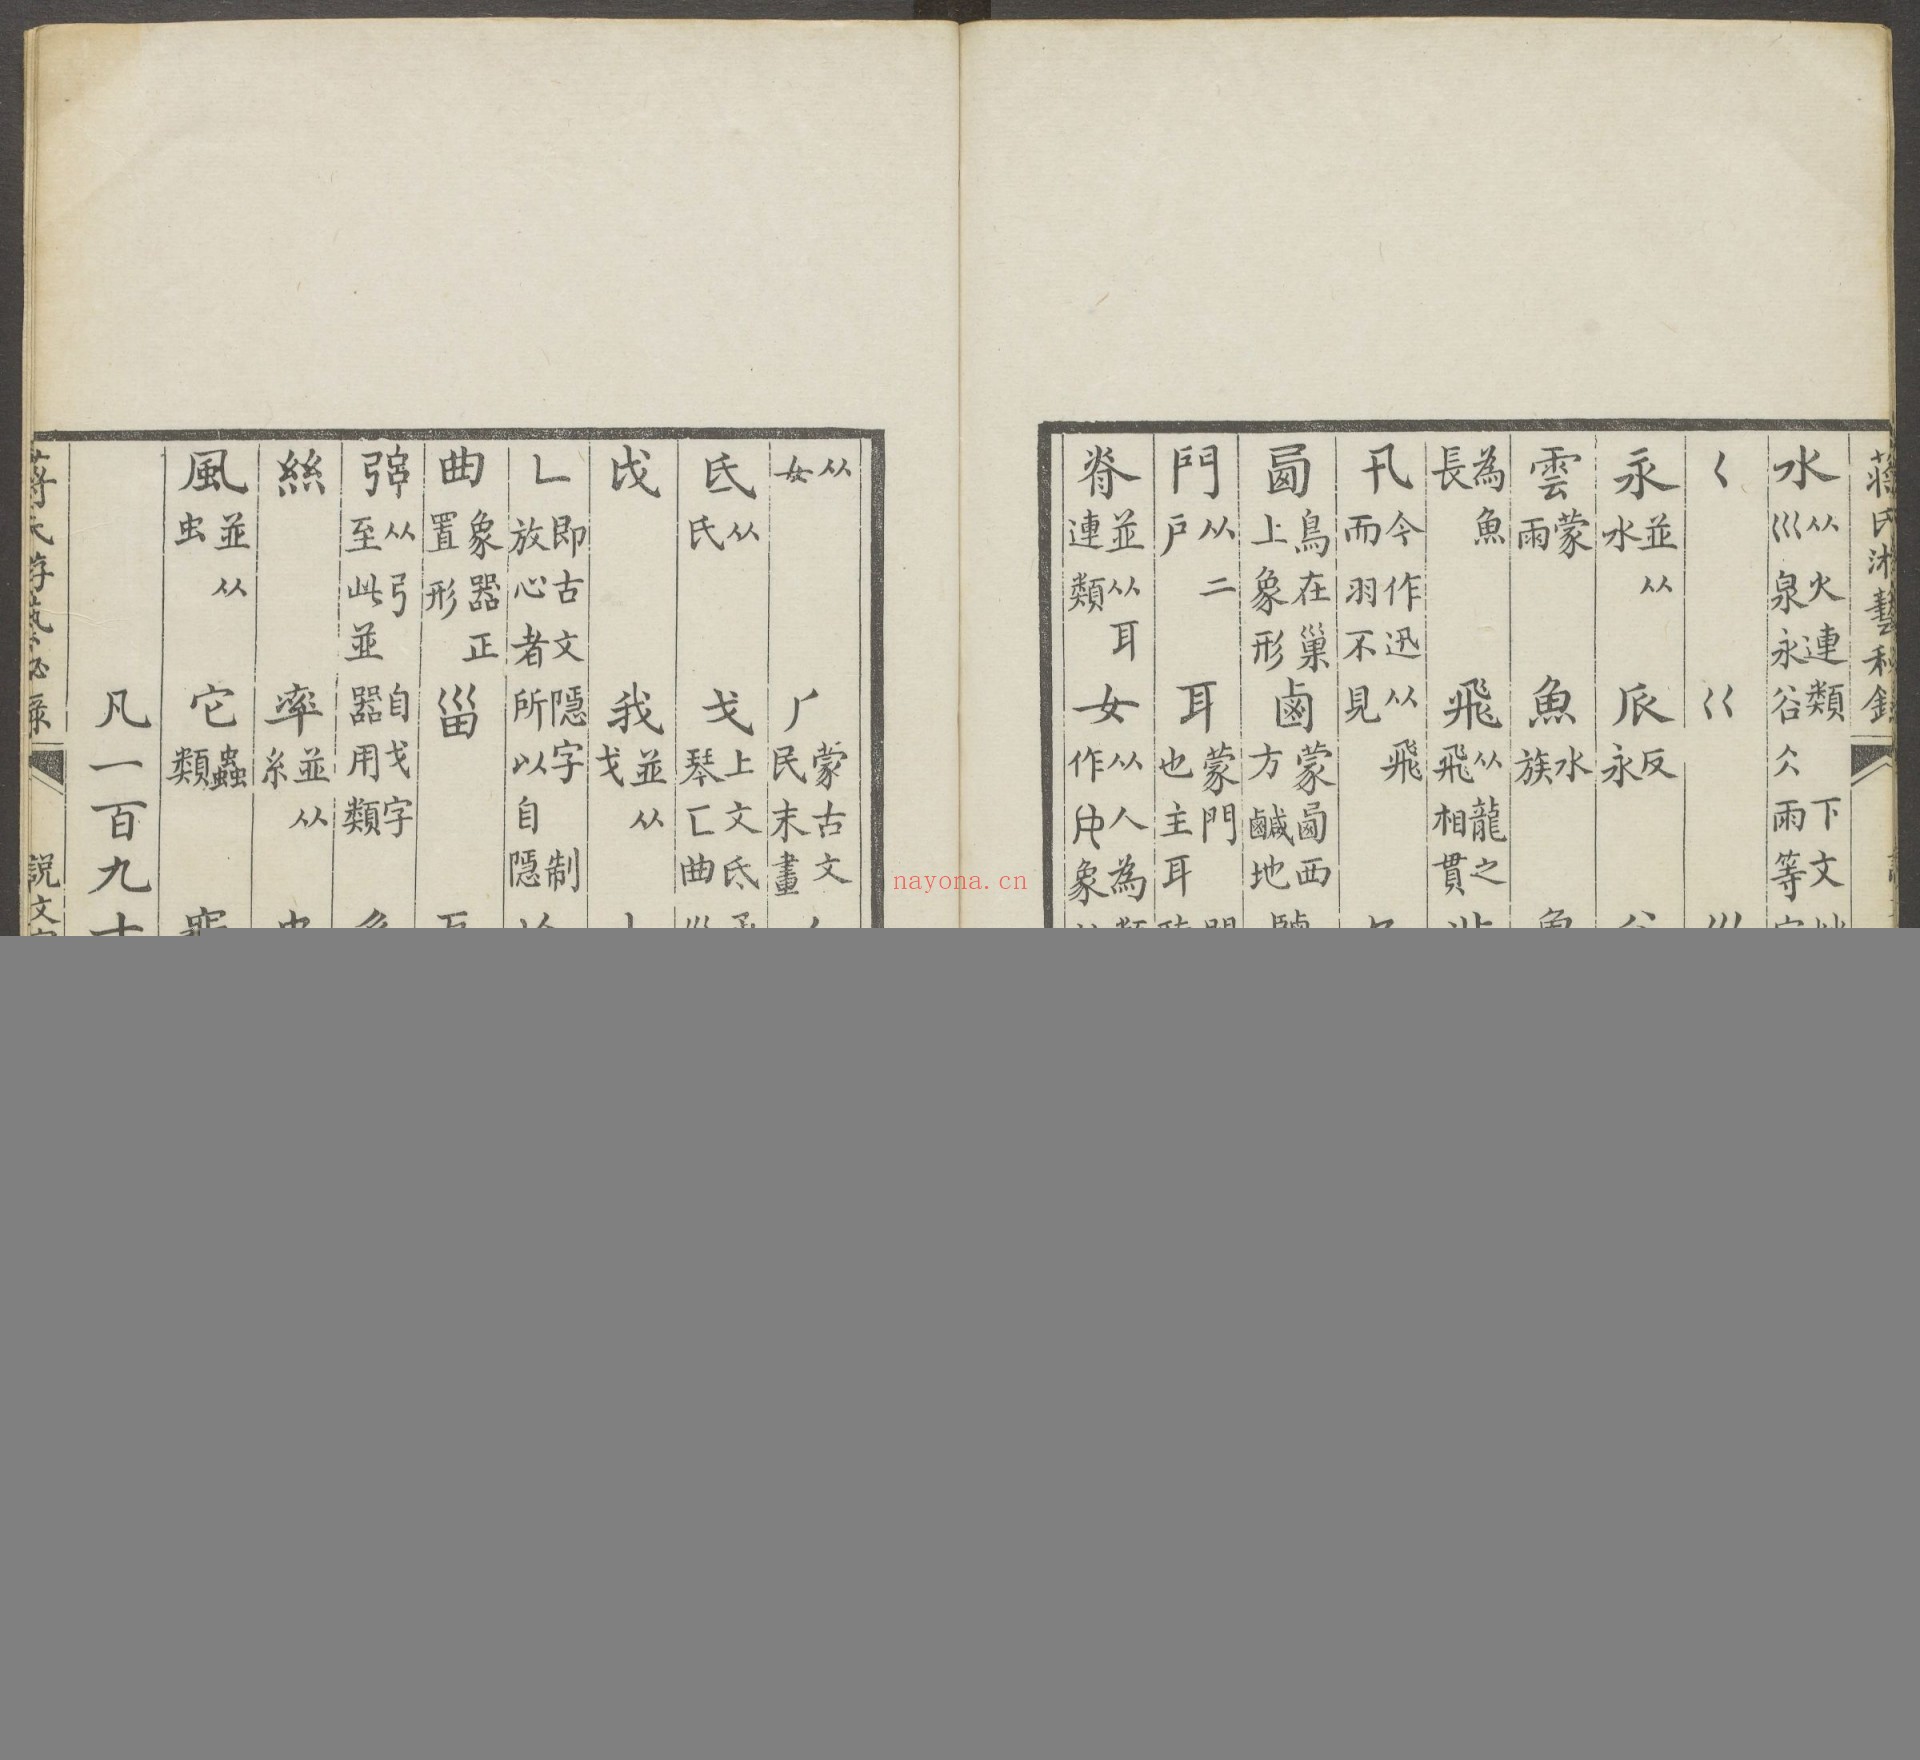 蔣氏游藝秘錄
水 从火連類下文 巛泉永谷仌雨等
く 巜
永 並从水 𠂢 反永
雲 蒙雨 魚 水族
為魚長 飛 从龍之飛相貫
卂 今作迅从飛而羽不見
㢴 鳥在巢上象形 鹵 蒙㢴西方鹹地
門 从二戶 耳 蒙門也主耳
脊 並从耳連類 女 从人為作象
从女 厂 蒙古文民末畫
氐 从氏 戈 上文氐琴匸曲
戉 我 並从戈
乚 即古文隱字制放心者所以自隱
曲 象器正置形 甾
弜 从弓至此並自戈字器用類
絲 率 並从糸
風 並从虫 它 蟲類
凡一百九
說文
nayona.cn